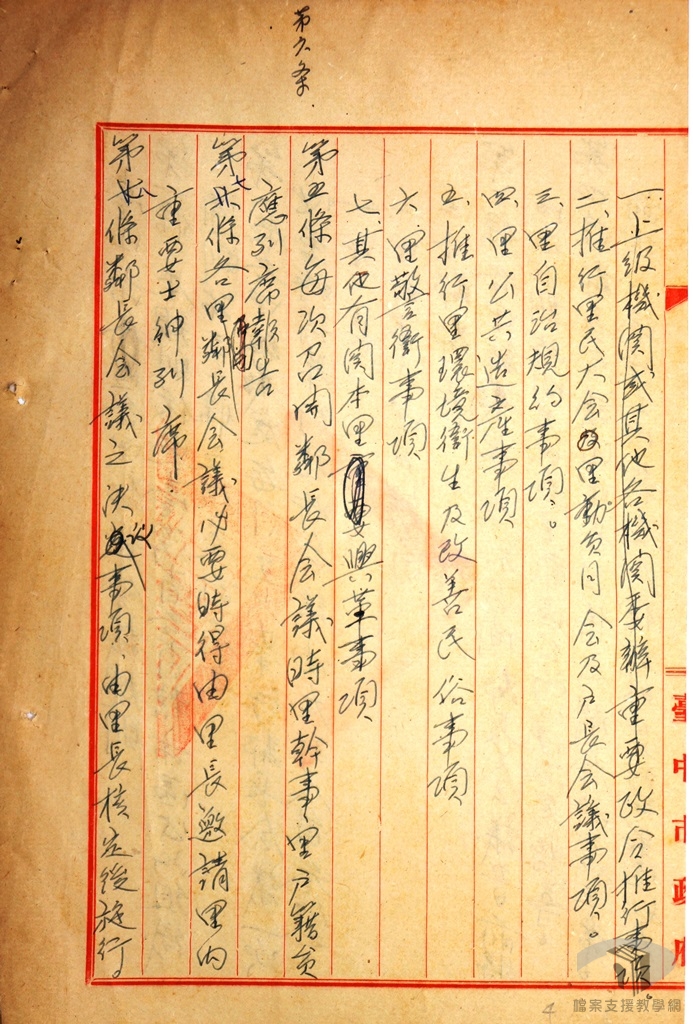 一、上級機関或其他各機関委辦重要政令推行事項。
二、推行里民大会及里動員月会及戶長会議事項。
三、里自治規約事項。
四、里公共造產事項
五、推行里環境衛生及改善民俗事項
六、里警衛事項
七、其他有関本里興革事項
第五條每次召開鄰長会議時里幹事里戶籍員
應列席報告
第七條各里鄰長会議必要時得由里長邀請里內
重要士紳列席.
第條鄰長会議之決议事項、由里長核定後施行
第六条
臺中市政府
4
檔案支援教學網